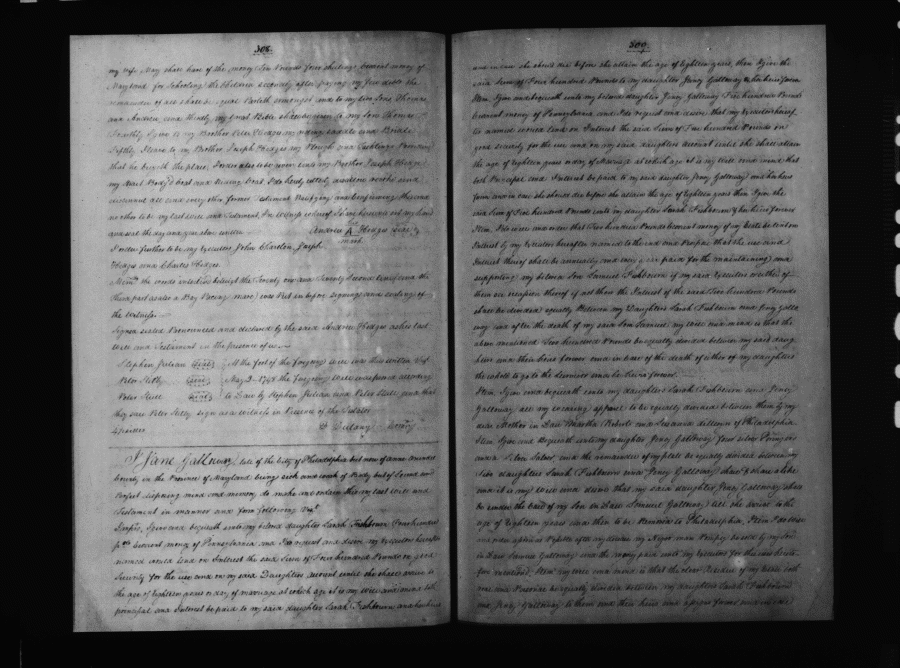 308.
my wife May shall have of the money Six Pounds four shillings current money of
Maryland for Schooling the Children secondly after paying my Just debts the
remainder of all shall be equal Parted amongst my Sons Thomas
and Andrew and thirdly my Great Bible I bequeath to my Son Thomas
Fourthly I give to my Brother Peter Hodges my riding saddle and Bridle
Fifthly I leave to my Brother Joseph Hodges my Plough and
that he buyeth the place I leave my Brother Joseph Hodges
my Boat I do hereby utterly disallow revoke and
disannul all and every other former Testament Ratifying and confirming this and
no other to be my last will and Testament In Witness whereof I have hereunto set my hand
and seal the day and year above written Andrew A Hodges Seal
mark
I order further to be my Executors John Charlton, Joseph
Hodges and Charles Hodges
the words interlined betwixt the Twenty one and Twenty Second lines and the
Third part was put in before signing and sealing of
the Witness
Signed sealed Pronounced and declared by the said Andrew Hodges as his last
Will and Testament in the presence of us
Stephen Julian seal At the foot of the foregoing Will was thus written Viz
Peter seal May 3 1748 the foregoing Will was proved according
Peter Still seal to Law by Stephen Julian and Peter Still and that
they saw Peter sign as a witness in Presence of the Testator
D Dulany
I Jane Galloway late of the City of Philadelphia but now of Anne Arundel
County in the Province of Maryland being sick and weak of Body but of sound and
Perfect disposing mind and memory do make and ordain this my last Will and
Testament in manner and form following Viz
Imprs, I give and bequeath unto my beloved daughter Sarah Fishbourn Four hundred
pds current money of Pennsylvania and I do request and desire my Executors hereafter
named would lend on Interest the said Sum of Four hundred Pounds on good
Security for the use and on my said Daughters account until she shall arrive to
the age of eighteen years or day of marriage at which age it is my will and mind both
principal and Interest be paid to my said daughter Sarah Fishbourn and her heirs
309.
and in case she should die before she attain the age of eighteen years, then I give the
said Sum of Four hundred Pounds to my daughter Jenny Galloway & her heirs forever
Item I give and bequeath unto my beloved daughter Jenny Galloway Five hundred Pounds
Current money of Pennsylvania and I do request and desire that my Executors hereafter
named would lend on Interest the said Sum of Five hundred Pounds on
good security for the use and on my said daughters account until she shall attain
the age of eighteen years or day of Marriage at which age it is my will and mind that
both Principal and Interest be paid to my said daughter Jenny Galloway and her heirs
forever and in case she should die before she attain the age of eighteen years then I give the
said Sum of Five hundred Pounds unto my daughter Sarah Fishbourn & her heirs forever
Item My will and order that Two hundred Pounds Current money of my Estate be lent on
Interest by my Executors hereafter named to the end and Purpose that the use and
Interest thereof shall be annually and every year paid for the maintaining and
supporting my beloved Son Samuel Fishbourn if my said Executors or either of
them see occasion thereof if not then the Interest of the said Two hundred Pounds
shall be divided equally Between my Daughters Sarah Fishbourn and Jenny Gallo
way and after the death of my said Son Samuel my will and mind is that the
above mentioned Two hundred Pounds be equally divided between my said daugh
ters and their heirs forever and in case of the death of either of my daughters
the whole to go to the survivor and her heirs forever.
Item I give and bequeath unto my daughters Sarah Fishbourn and Jenny
Galloway all my wearing apparel to be equally divided between them by my
dear Mother in Law Martha Roberts and Susanna
Item I give and Bequeath unto my daughter Jenny Galloway Four silver Porringers
and a Silver Salver, and the remainder of my plate to be equally divided between my
Two daughters Sarah Fishbourn and Jenny Galloway share & share alike
and it is my will and desire that my said daughter Jenny Galloway shall
be under the care of my Son in Law Samuel Galloway till she arrive to the
age of eighteen years and then to be Removed to Philadelphia, Item I do order
and Request that as speedily after my decease my Negro man Pompey be sold by my Son
in Law Samuel Galloway and the money paid unto my Executors for the uses hereto
fore mentioned, Item my will and mind is that the clear Residue of my Estate both
real and Personal be equally divided between my daughters Sarah Fishbourn
and Jenny Galloway to them and their heirs and assigns forever and in case